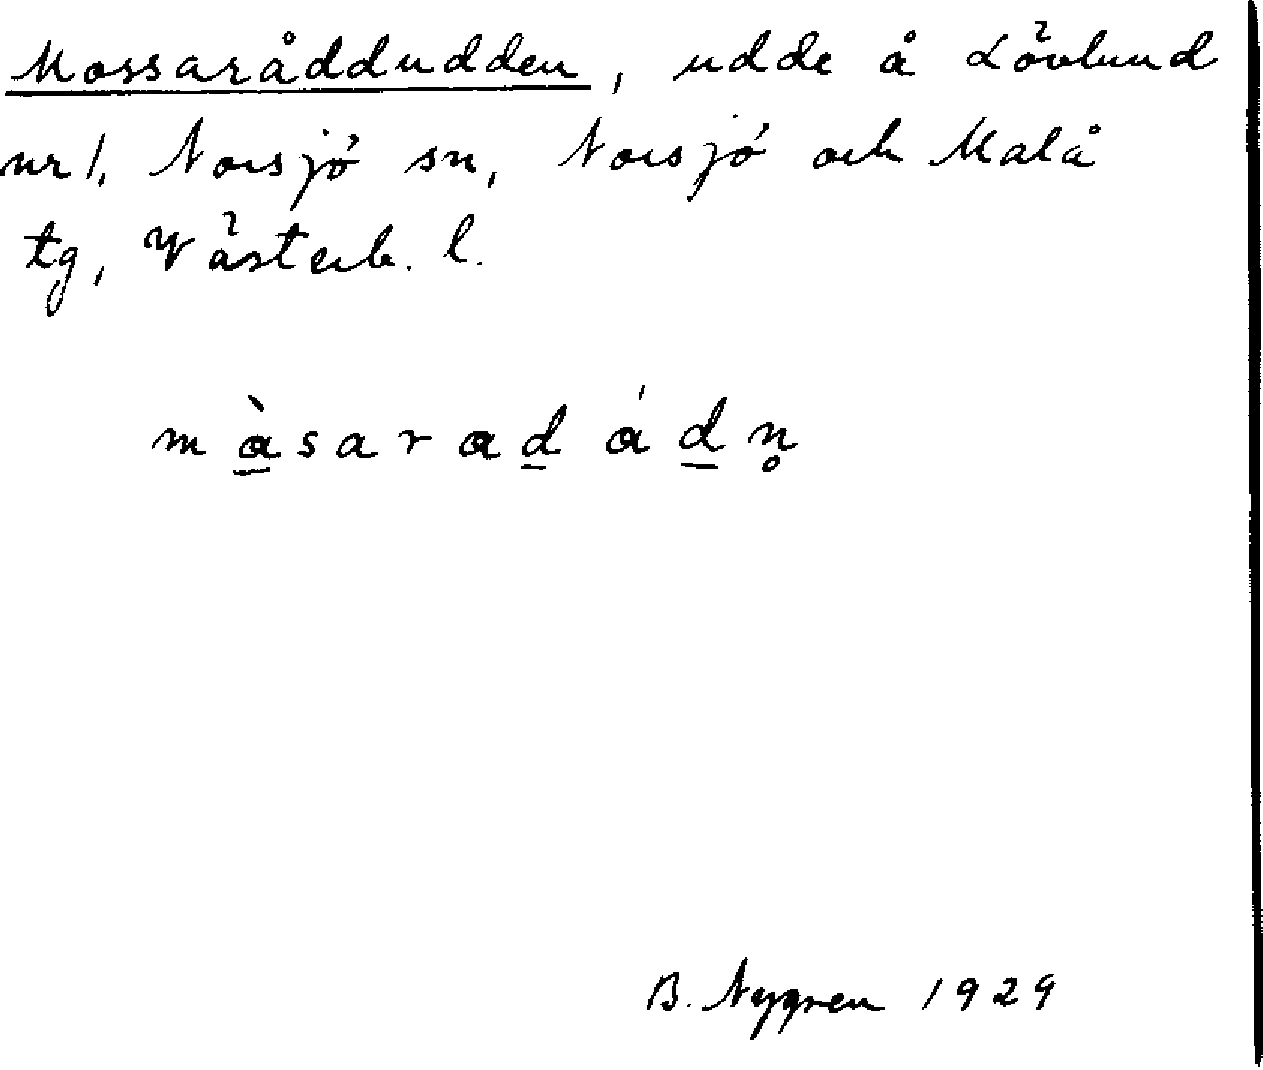 Mossaråddudden, udde å Lövlund
nr 1, Norsjö sn, Norsjö och Malå
tg, Västerb. l.
m à̱ s a r a ḏ á ḏ n̥
B. Nygren 1929